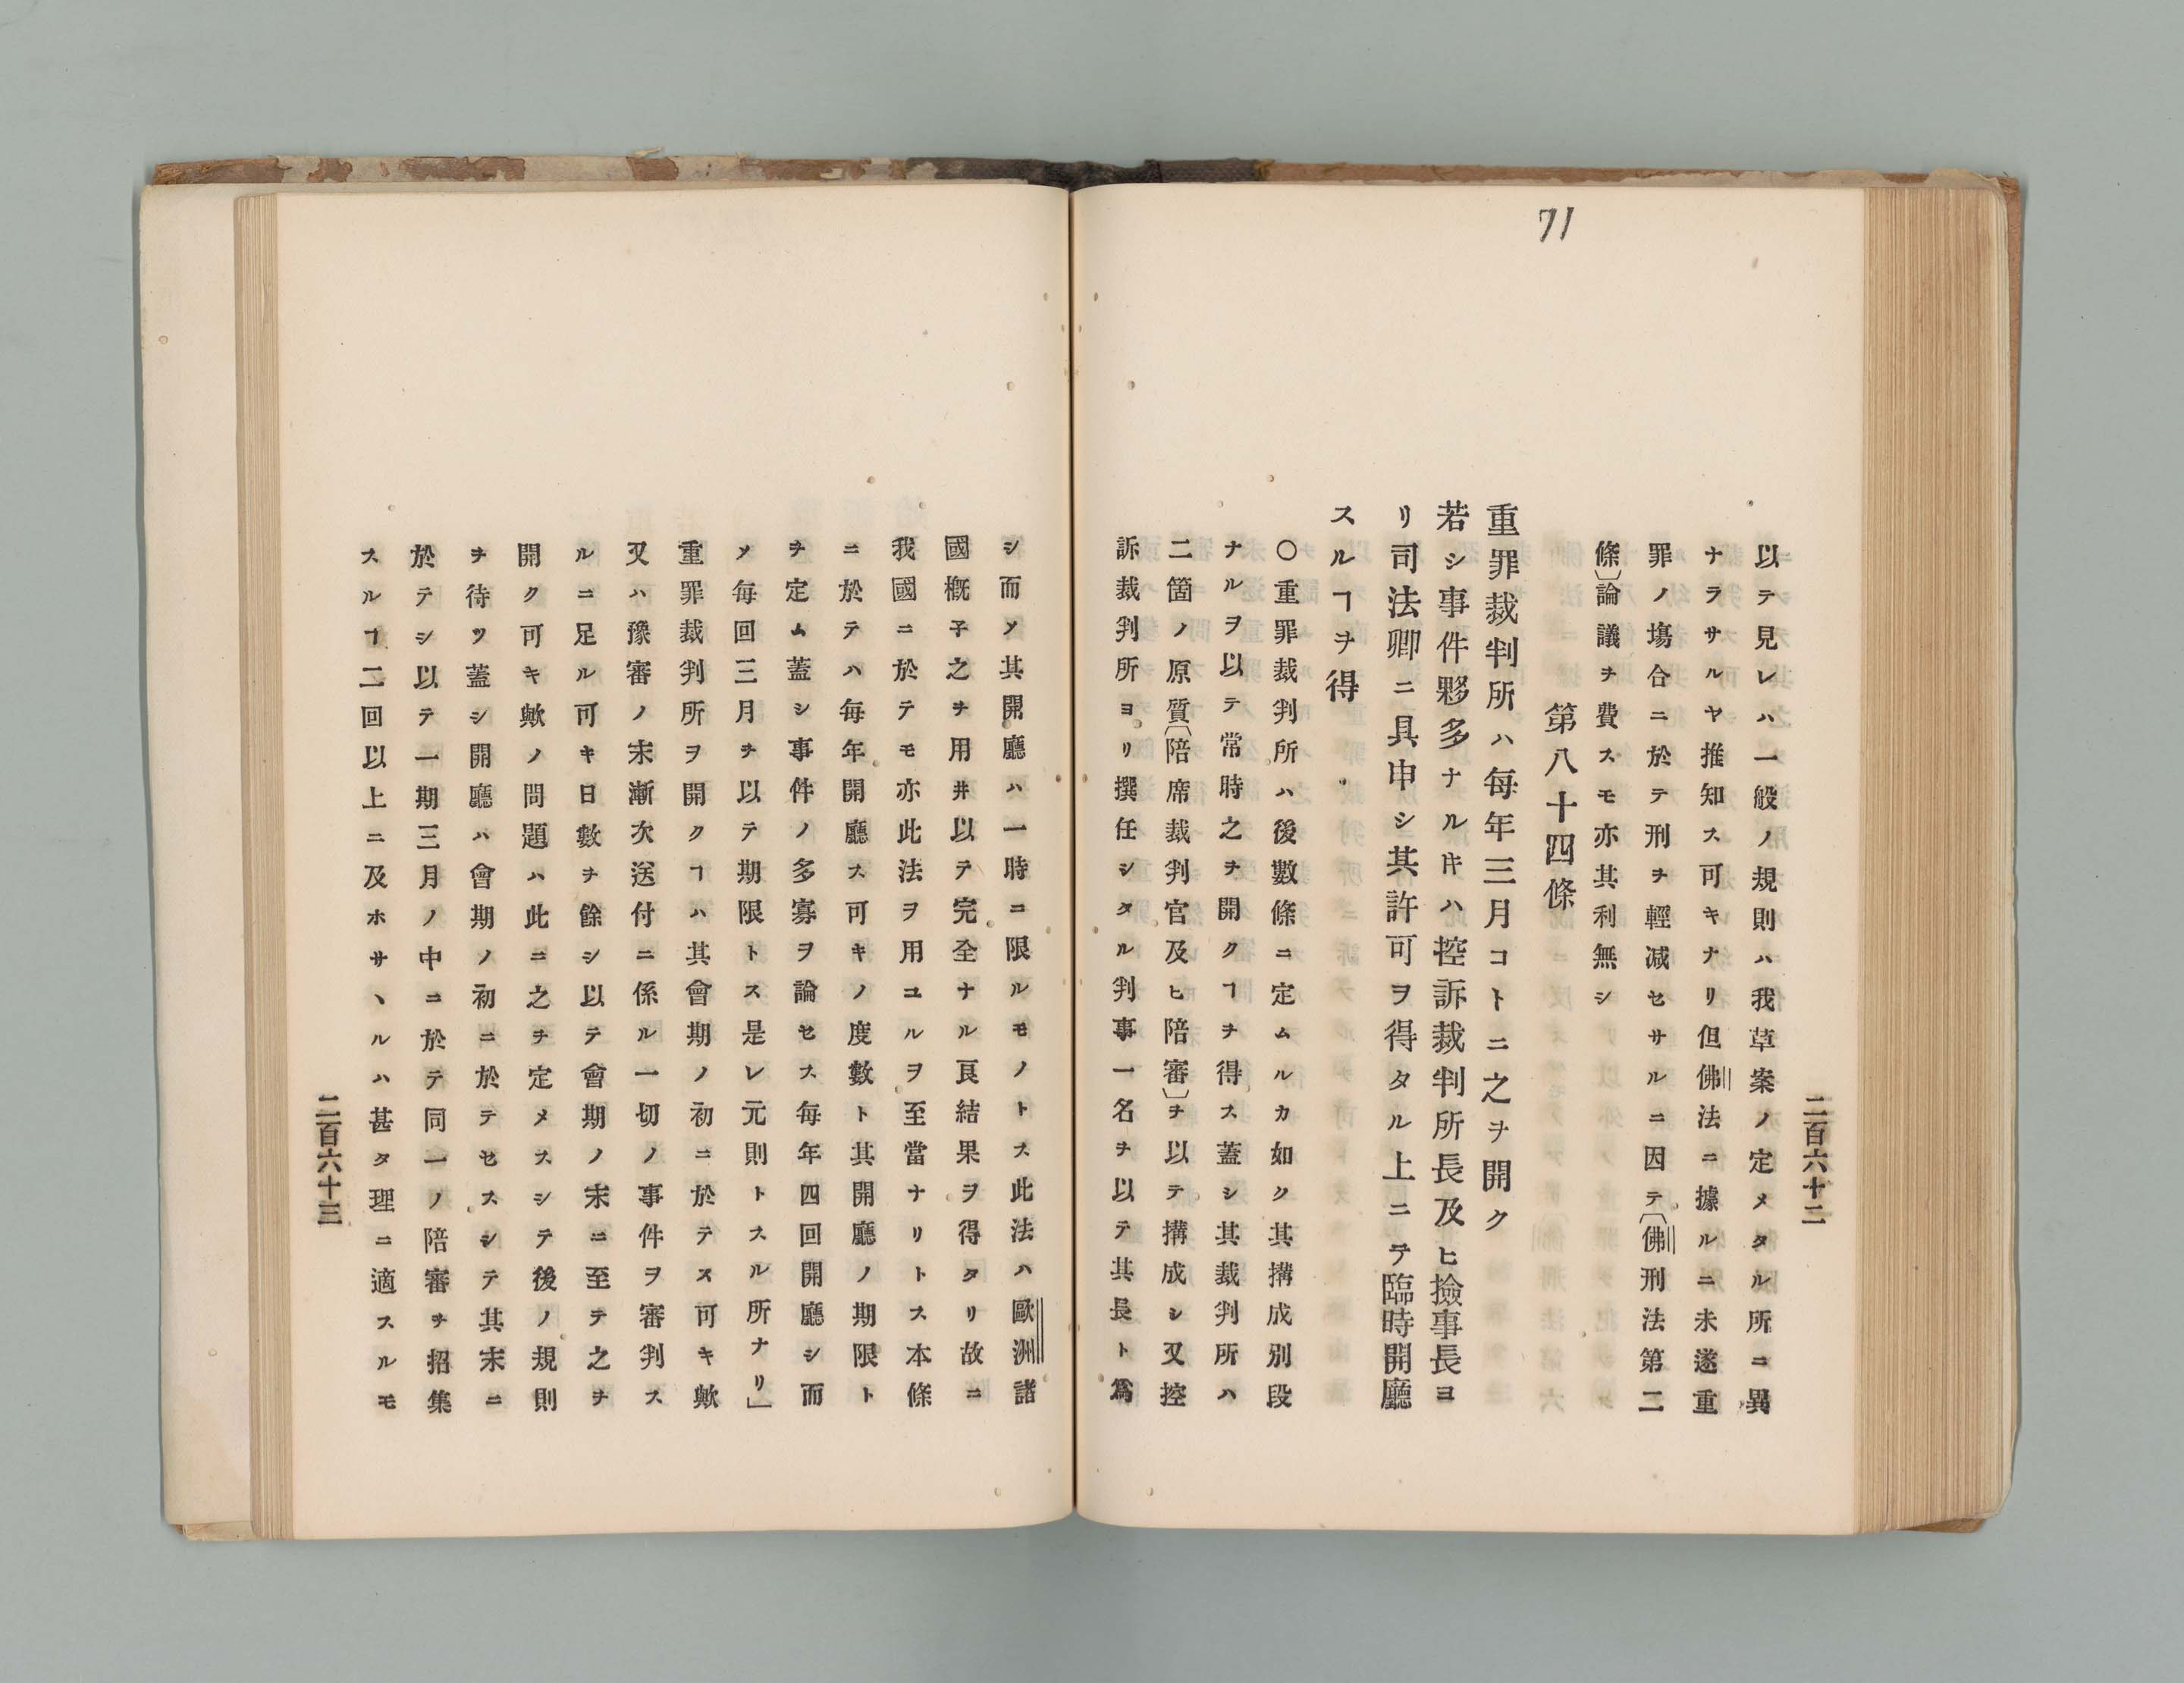 71
二百六十二
以テ見レハ一般ノ規則ハ我草案ノ定メタル所ニ異
ナラサルヤ推知ス可キナリ但佛法ニ據ルニ未遂重
罪ノ塲合ニ於テ刑ヲ輕減セサルニ因テ〔佛刑法第二
條〕論議ヲ費スモ亦其利無シ
第八十四條
重罪裁判所ハ每年三月コトニ之ヲ開ク
若シ事件夥多ナルㇳキハ控訴裁判所長及ヒ撿事長ヨ
リ司法卿ニ具申シ其許可ヲ得タル上ニテ臨時開廳
スルヿヲ得
〇重罪裁判所ハ後數條ニ定ムルカ如ク其搆成別段
ナルヲ以テ常時之ヲ開クヿヲ得ス蓋シ其裁判所ハ
二箇ノ原質〔陪席裁判官及ヒ陪審〕ヲ以テ搆成シ又控
訴裁判所ヨリ撰任シタル判事一名ヲ以テ其長ト爲
シ而ソ其開廳ハ一時ニ限ルモノトス此法ハ歐洲諸
國概子之ヲ用井以テ完全ナル良結果ヲ得タリ故ニ
我國ニ於テモ亦此法ヲ用ユルヲ至當ナリトス本條
ニ於テハ每年開廳ス可キノ度數ト其開廳ノ期限ト
ヲ定ム蓋シ事件ノ多寡ヲ論セス每年四回開廳シ而
ソ每回三月ヲ以テ期限トス是レ元則トスル所ナリ」
重罪裁判所ヲ開クヿハ其會期ノ初ニ於テス可キ歟
又ハ豫審ノ末漸次送付ニ係ル一切ノ事件ヲ審判ス
ルニ足ル可キ日數ヲ餘シ以テ會期ノ末ニ至テ之ヲ
開ク可キ歟ノ問題ハ此ニ之ヲ定メスシテ後ノ規則
ヲ待ツ蓋シ開廳ハ會期ノ初ニ於テセスシテ其末ニ
於テシ以テ一期三月ノ中ニ於テ同一ノ陪審ヲ招集
スルヿ二回以上ニ及ホサヽルハ甚タ理ニ適スルモ
二百六十三